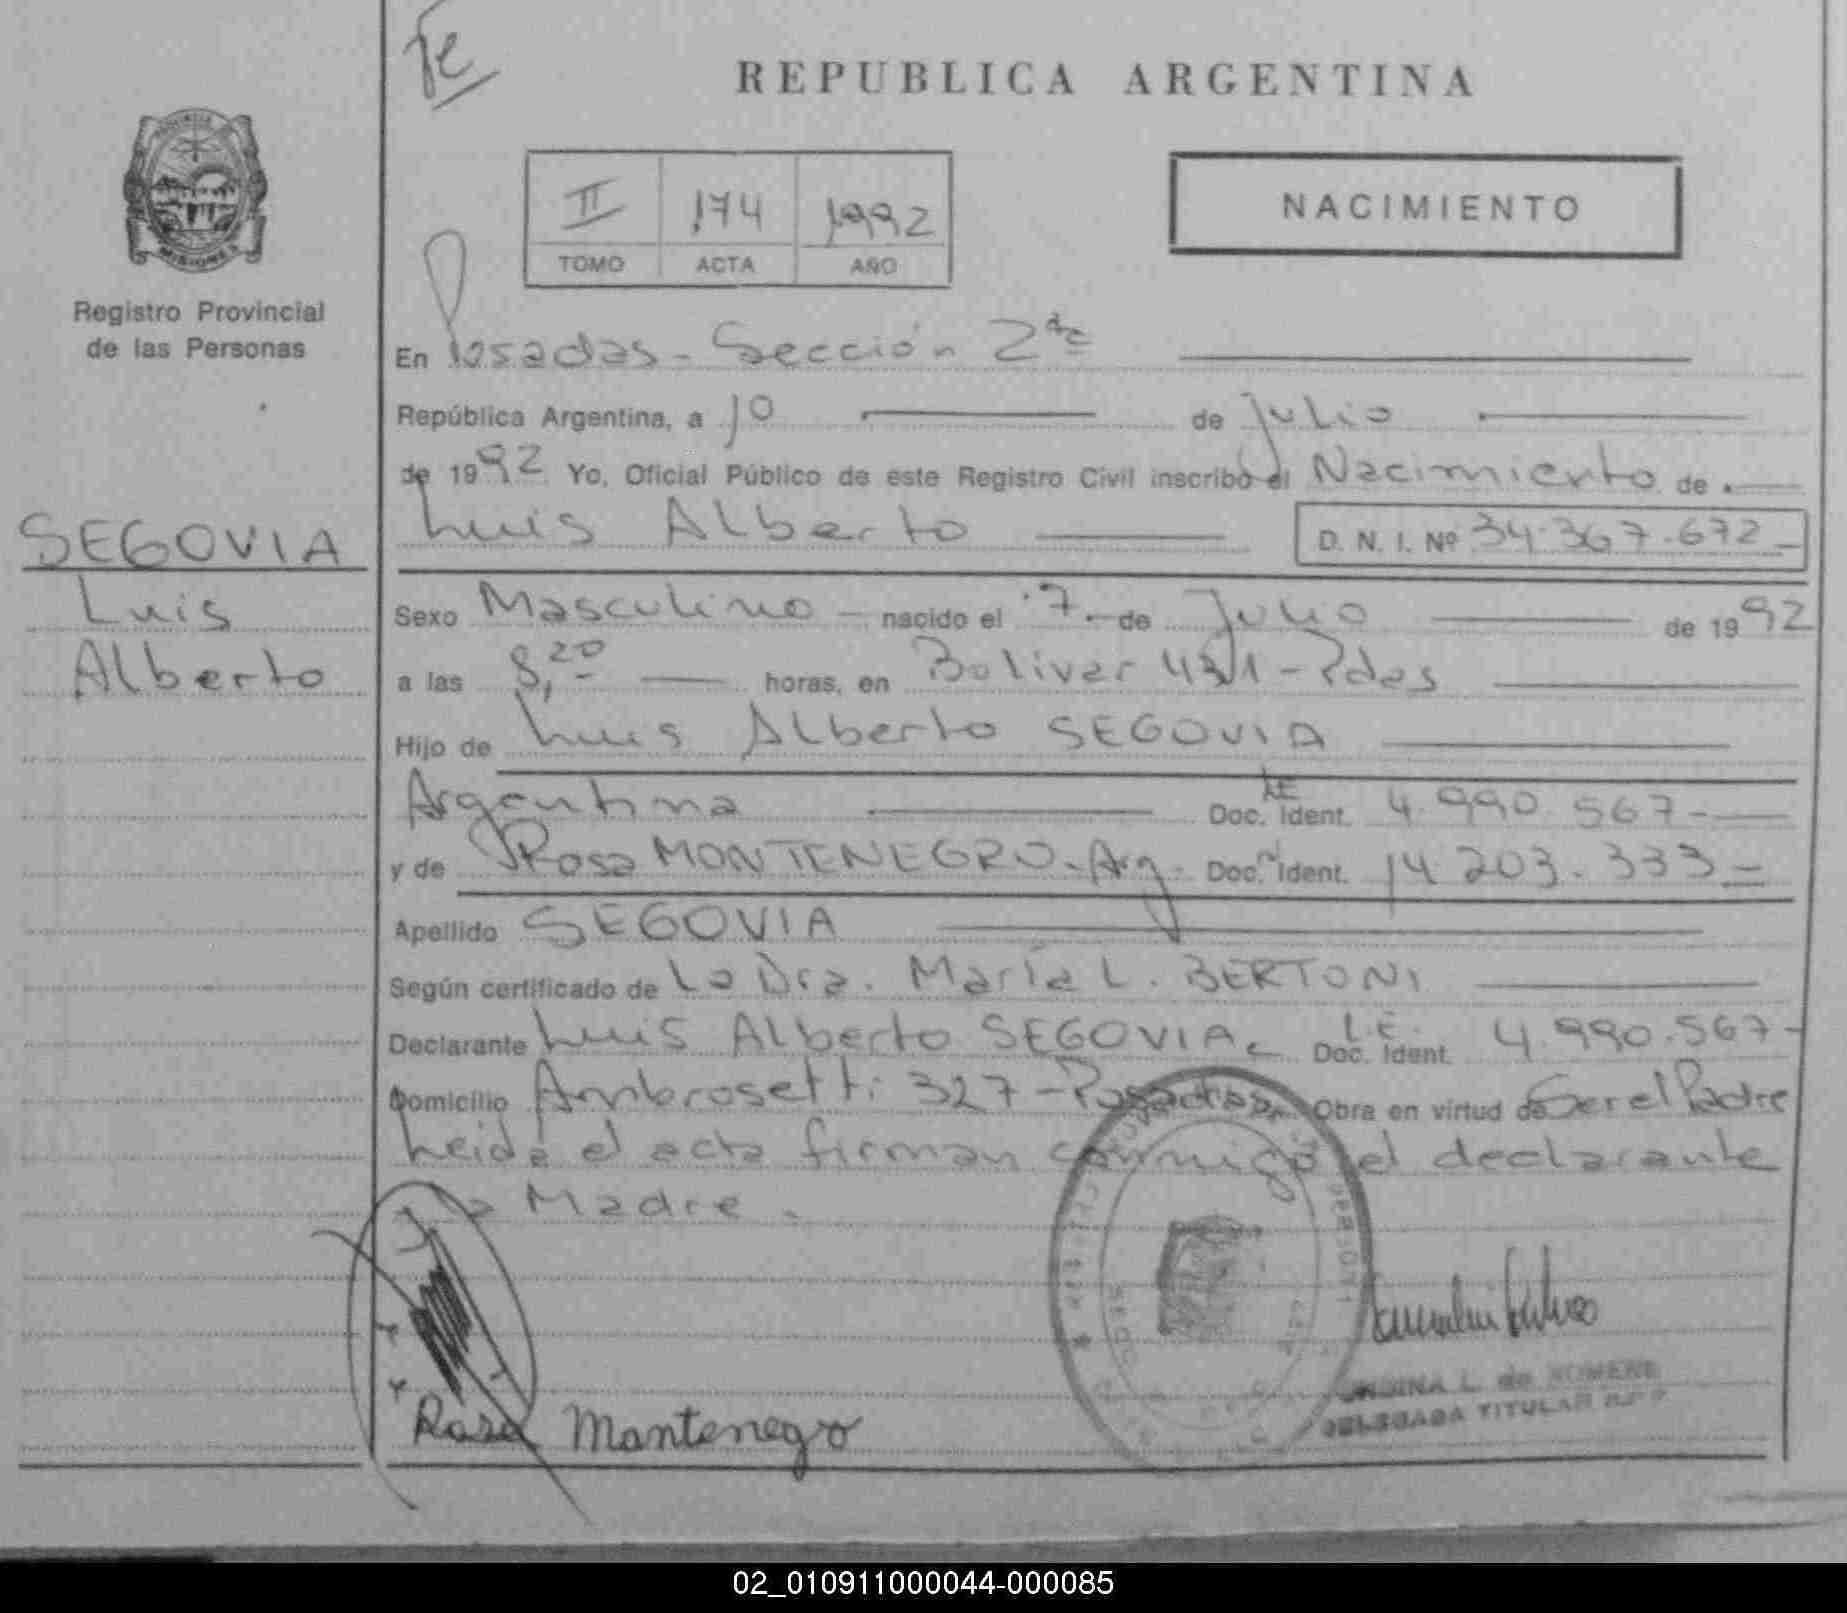 Te
REPUBLICA ARGENTINA
II 174 1992
TOMO ACTA AÑO
NACIMIENTO
PROVINCIA
MISIONES
Registro Provincial
de las Personas
SEGOVIA
Luis
Alberto
En Posadas - Sección 2da
República Argentina, a 10 de Julio
de 1992 Yo, Oficial Público de este Registro Civil inscribo el Nacimiento de
Luis Alberto D. N. I. Nº 34.367.672
Sexo Masculino - nacido el 7 - de Julio de 1992
a las 8,20 horas, en Bolivar 431 - Pdas
Hijo de Luis Alberto SEGOVIA
Argentina Doc. Ident. LE 4.990.567-
y de Rosa MONTENEGRO - Arg. Doc. Ident. 14.203.333-
Apellido SEGOVIA
Según certificado de La Dra. María L. BERTONI
Declarante Luis Alberto SEGOVIA, Doc. Ident. L.E. 4.990.567-
Domicilio Ambrosetti 327 - Posadas Obra en virtud de Ser el Padre
Leida el acta firman conmigo el declarante
la Madre.
Rosa Montenego
L. de ROMERO
DELEGADA TITULAR
02_010911000044-000085